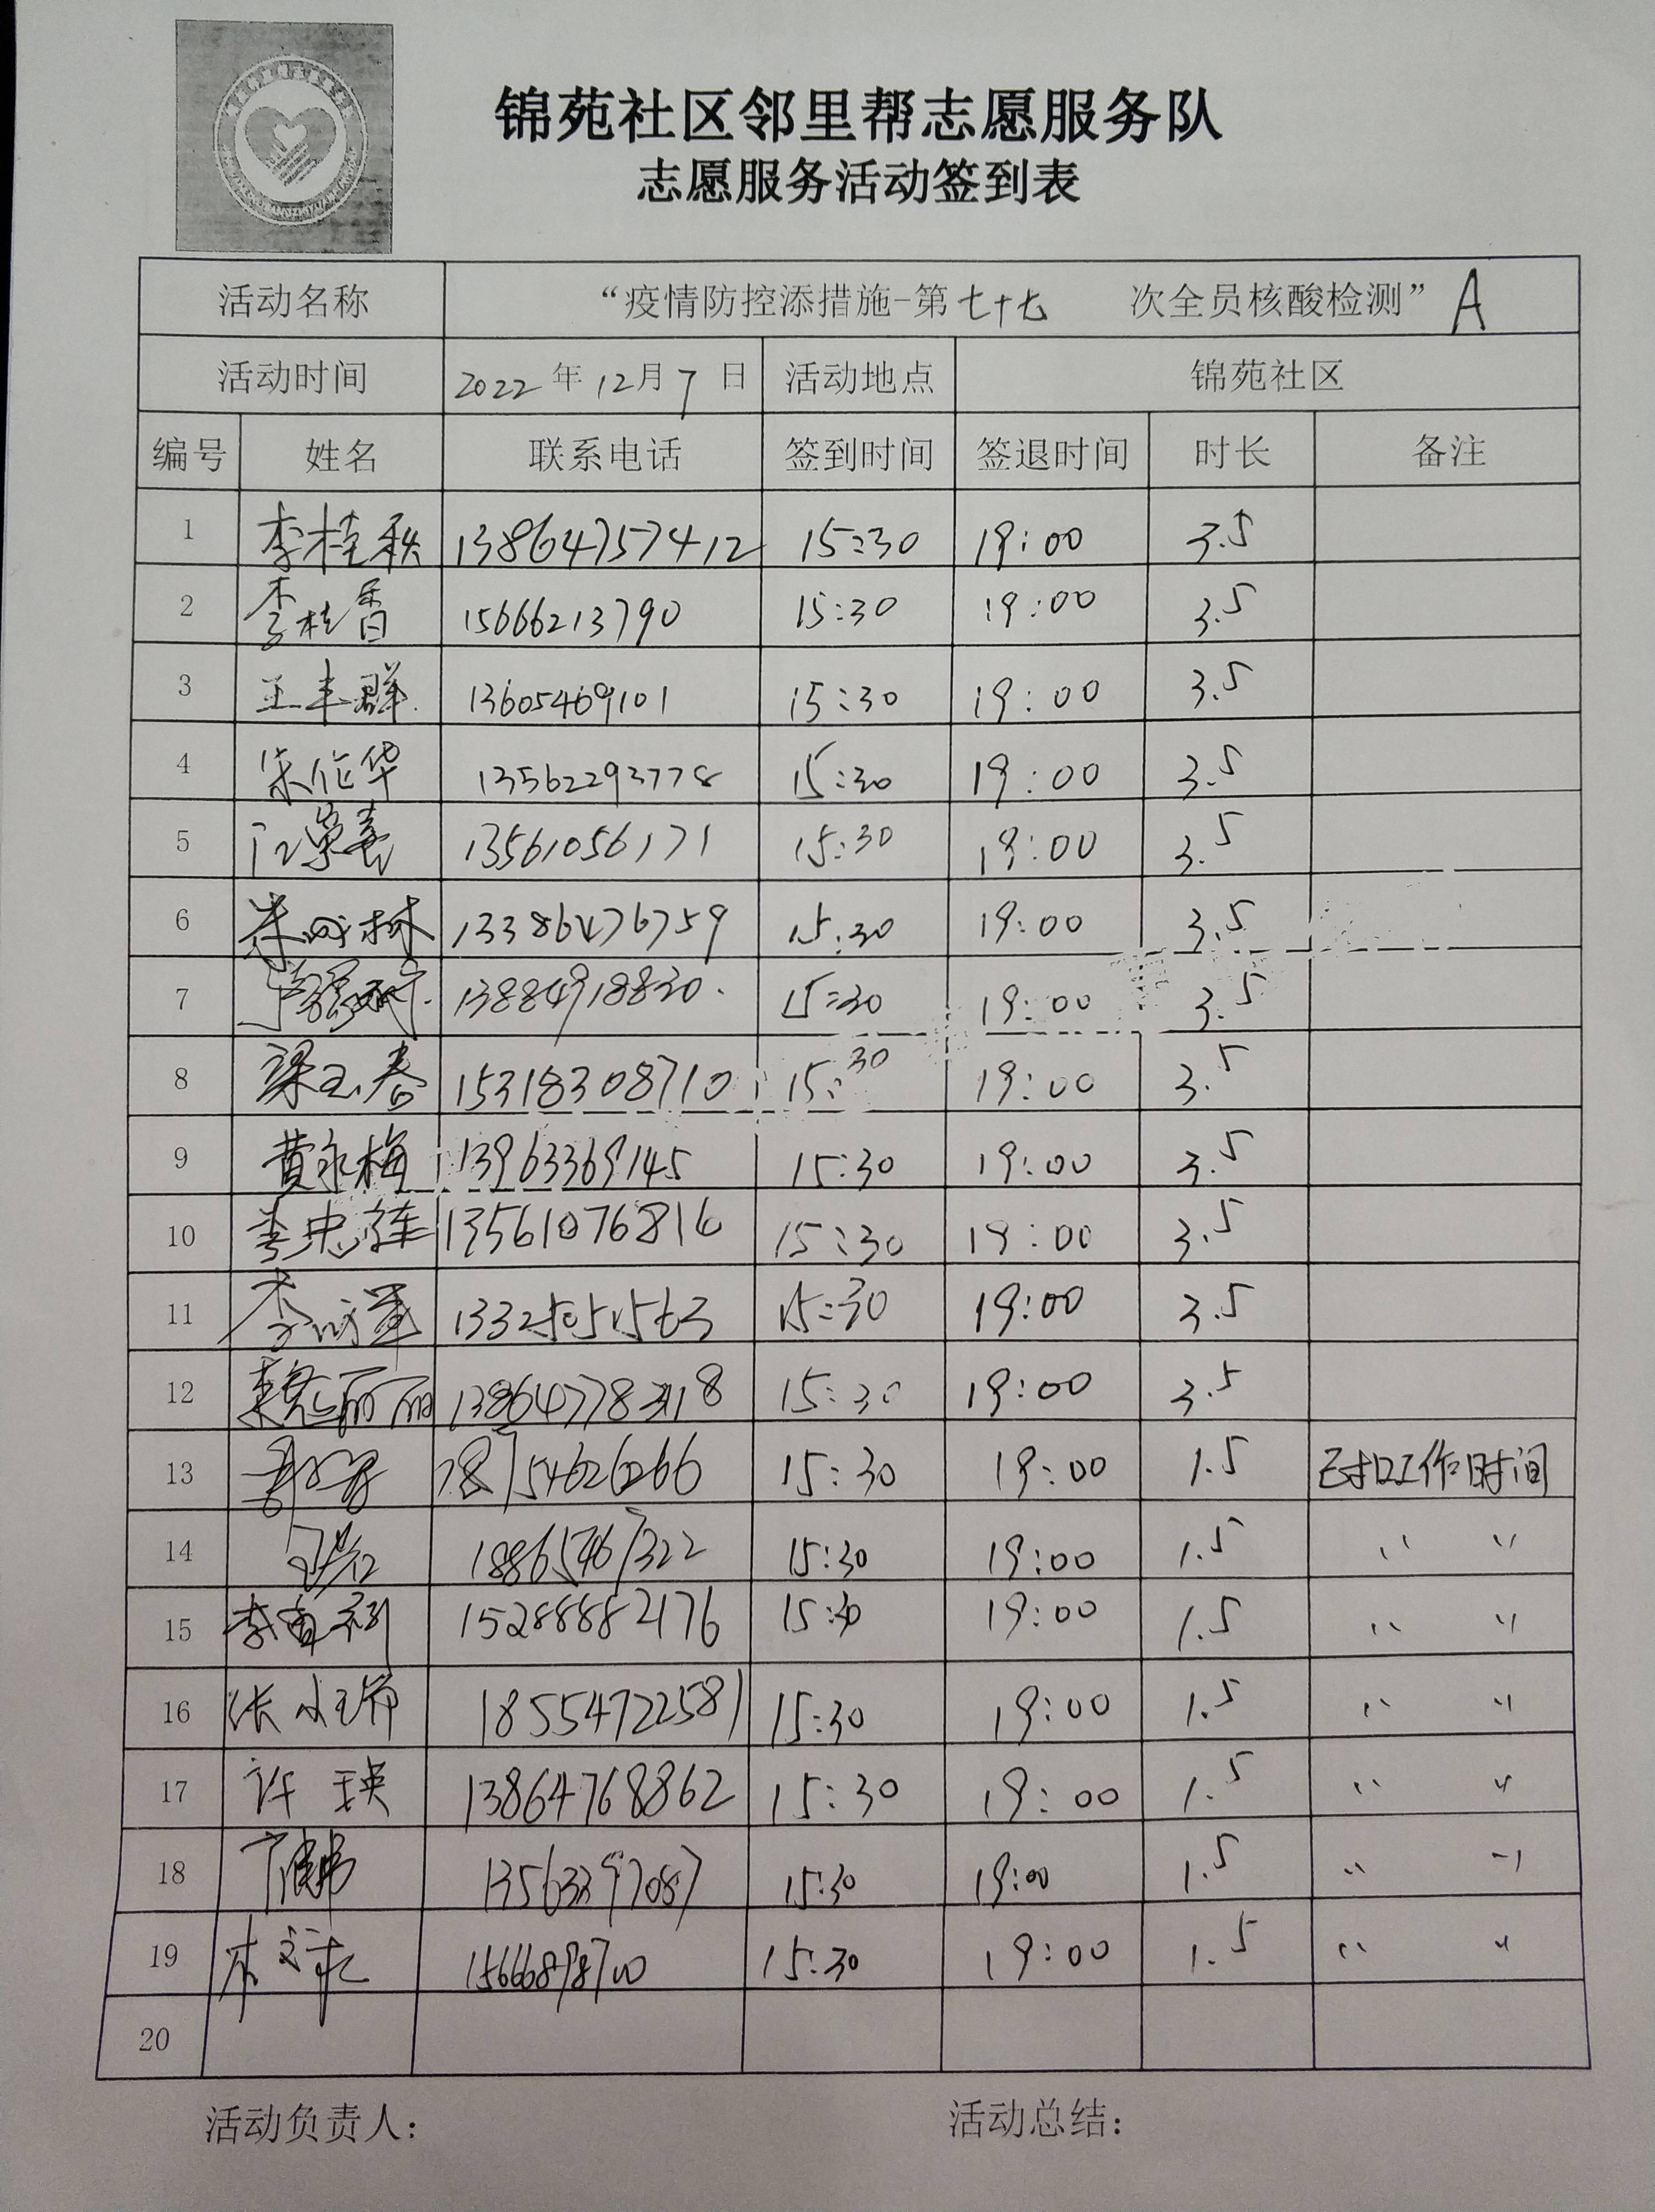 锦苑社区邻里帮志愿服务队
志愿服务活动签到表
活动名称 “疫情防控添措施-第七十七 次全员核酸检测” A
活动时间 2022年12月7日 活动地点 锦苑社区
编号 姓名 联系电话 签到时间 签退时间 时长 备注
1 李桂秋 13864757412 15:30 19:00 3.5
2 李桂香 15666213790 15:30 19:00 3.5
3 王丰群 13605469101 15:30 19:00 3.5
4 朱作华 13562293778 15:30 19:00 3.5
5 13561056171 15:30 19:00 3.5
6 朱成林 13386476759 15:30 19:00 3.5
7 13884918830 15:30 19:00 3.5
8 梁玉春 15318308710 15:30 19:00 3.5
9 黄永梅 13963369145 15:30 19:00 3.5
10 13561076816 15:30 19:00 3.5
11 13325051563 15:30 19:00 3.5
12 15:30 19:00 3.5
13 18754626266 15:30 19:00 1.5 已扣工作时间
14 18865467322 15:30 19:00 1.5 〃 〃
15 15288882176 15:30 19:00 1.5 〃 〃
16 18554722581 15:30 19:00 1.5 〃 〃
17 许瑛 13864768862 15:30 19:00 1.5 〃 〃
18 13563397087 15:30 19:00 1.5 〃 〃
19 15666898700 15:30 19:00 1.5 〃 〃
20
活动负责人： 活动总结：